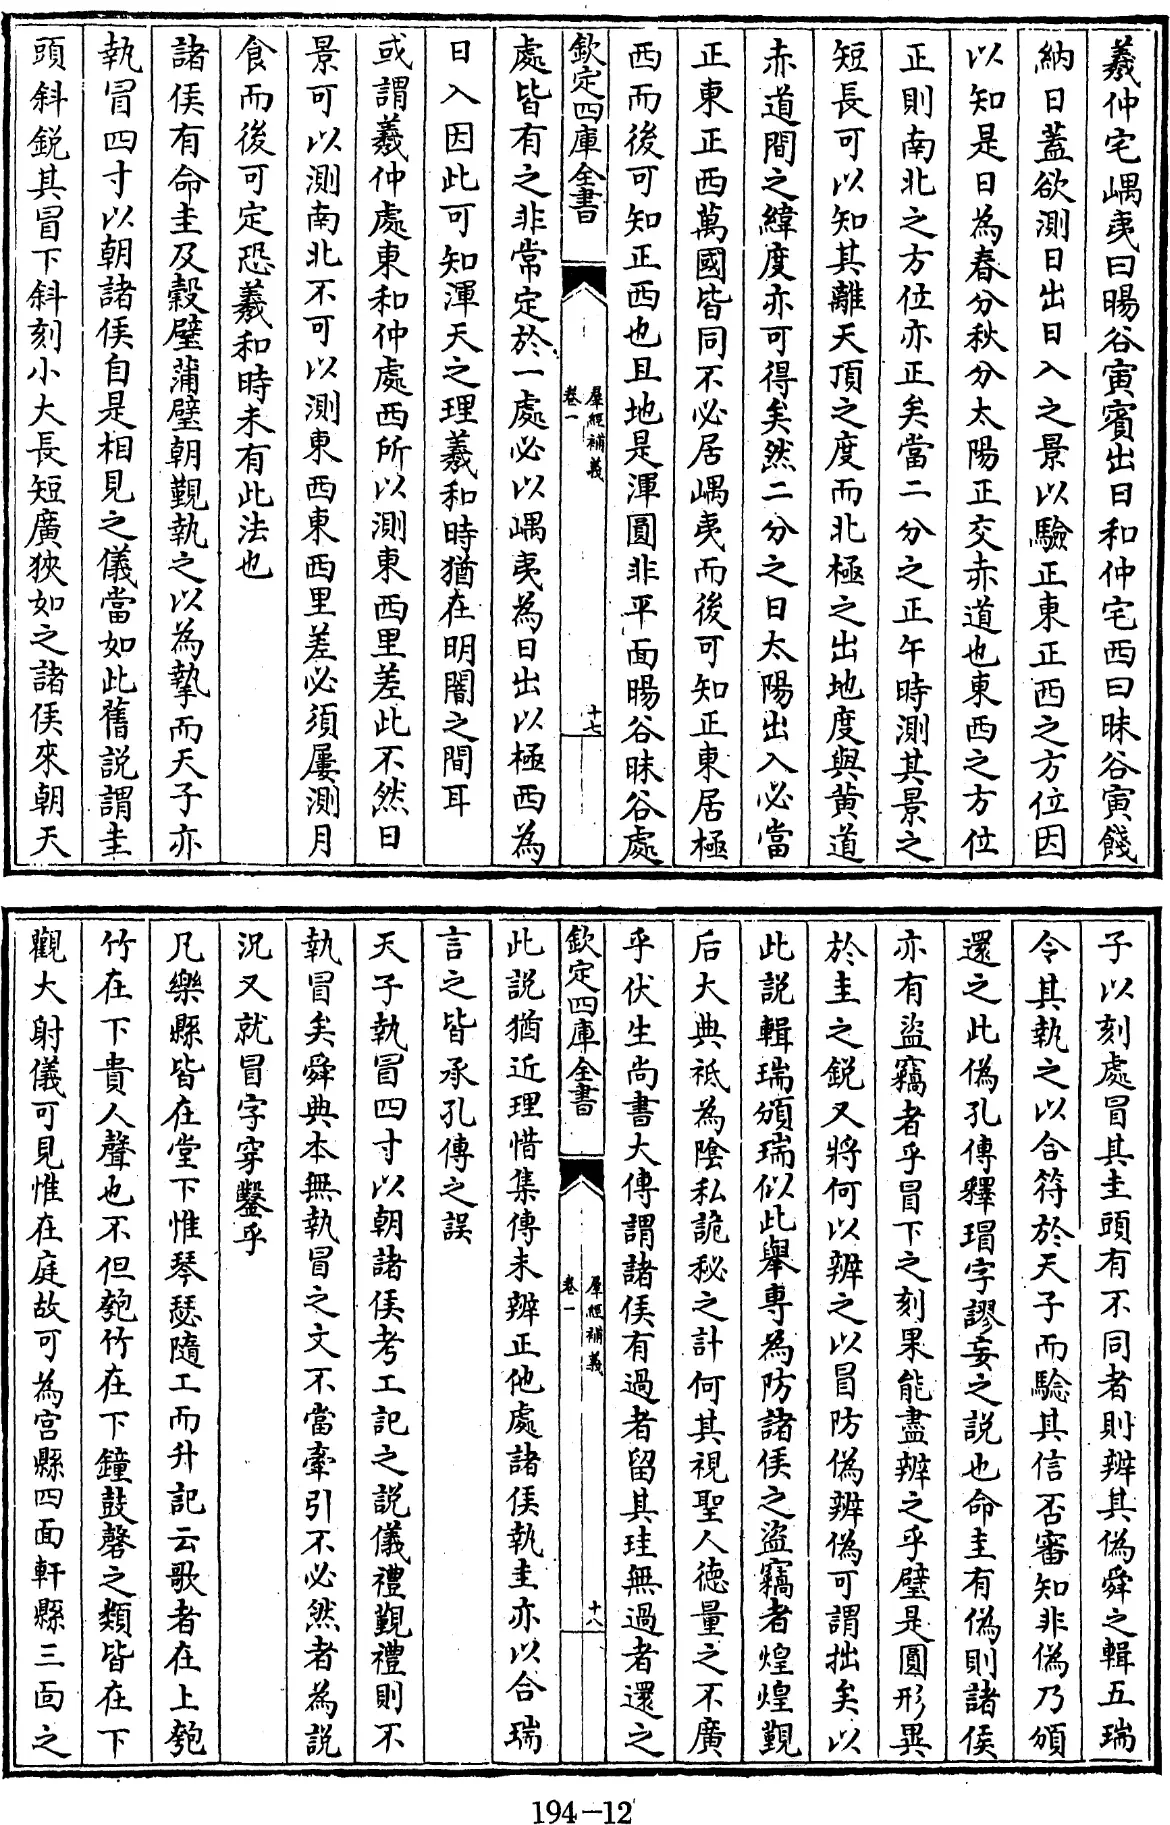 羲仲宅嵎夷曰暘谷寅賔出日和仲宅西曰昧谷寅餞
納日蓋欲測日出日入之景以驗正東正西之方位因
以知是日為春分秋分太陽正交赤道也東西之方位
正則南北之方位亦正矣當二分之正午時測其景之
短長可以知其離天頂之度而北極之出地度與黄道
赤道間之緯度亦可得矣然二分之日太陽出入必當
正東正西萬國皆同不必居嵎夷而後可知正東居極
西而後可知正西也且地是渾圓非平面暘谷昧谷處
欽定四庫全書
羣經補義
卷一
十七
處皆有之非常定於一處必以嵎夷為日出以極西為
日入因此可知渾天之理羲和時猶在明闇之間耳
或謂羲仲處東和仲處西所以測東西里差此不然日
景可以測南北不可以測東西東西里差必須屢測月
食而後可定恐羲和時未有此法也
諸侯有命圭及穀璧蒲璧朝覲執之以為摯而天子亦
執冒四寸以朝諸侯自是相見之儀當如此舊説謂圭
頭斜鋭其冒下斜刻小大長短廣狹如之諸侯來朝天
子以刻處冒其圭頭有不同者則辨其偽舜之輯五瑞
令其執之以合符於天子而驗其信否審知非偽乃頒
還之此偽孔傳釋瑁字謬妄之説也命圭有偽則諸侯
亦有盜竊者乎冒下之刻果能盡辨之乎璧是圓形異
於圭之鋭又將何以辨之以冒防偽辨偽可謂拙矣以
此説輯瑞頒瑞似此舉專為防諸侯之盜竊者煌煌覲
后大典祗為陰私詭秘之計何其視聖人德量之不廣
乎伏生尚書大傳謂諸侯有過者留其珪無過者還之
欽定四庫全書
羣經補義
卷一
十八
此説猶近理惜集傳未辨正他處諸侯執圭亦以合瑞
言之皆承孔傳之誤
天子執冒四寸以朝諸侯考工記之説儀禮覲禮則不
執冒矣舜典本無執冒之文不當牽引不必然者為説
況又就冒字穿鑿乎
凡樂縣皆在堂下惟琴瑟隨工而升記云歌者在上匏
竹在下貴人聲也不但匏竹在下鐘鼓磬之類皆在下
觀大射儀可見惟在庭故可為宫縣四面軒縣三面之
194-12